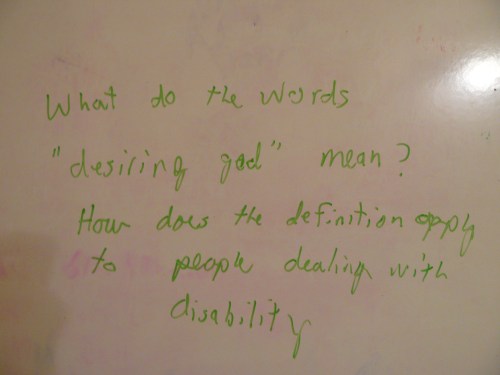 What do the words
"desiring god" mean?
How does the definition apply
to people dealing with
disability